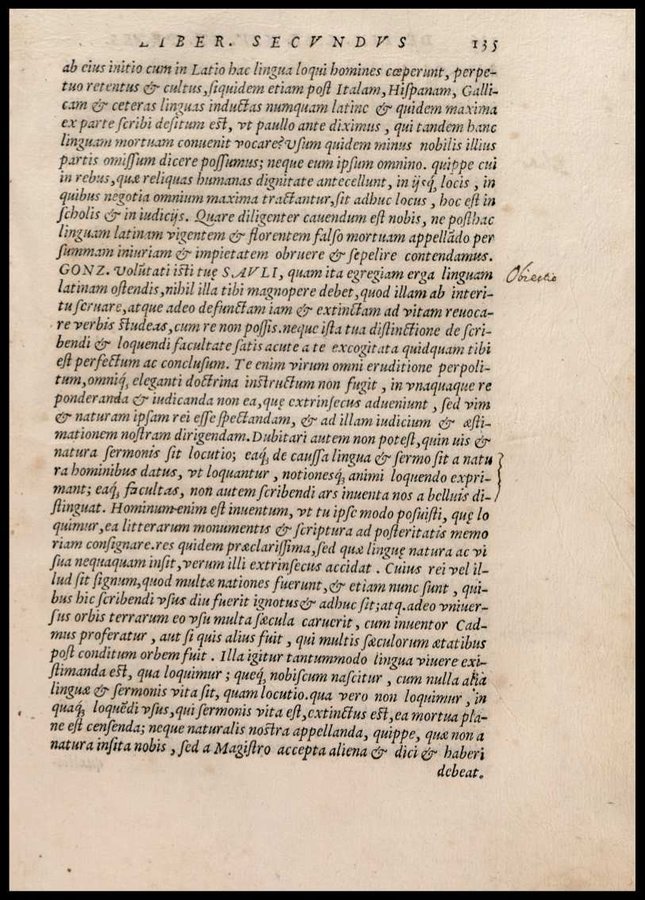 LIBER. SECVNDVS 135
ab eius initio cum in Latio hac lingua loqui homines cœperunt, perpe-
tuo retentus & cultus, siquidem etiam post Italam, Hispanam, Galli
cam & ceteras linguas inductas numquam latine & quidem maxima
ex parte scribi desitum est, vt paullo ante diximus, qui tandem hanc
linguam mortuam conuenit vocare? vsum quidem minus nobilis illius
partis omissum dicere possumus; neque eum ipsum omnino. quippe cui
in rebus, quæ reliquas humanas dignitate antecellunt, in ijsq́; locis, in
quibus negotia omnium maxima tractantur, sit adhuc locus, hoc est in
scholis & in iudicijs. Quare diligenter cauendum est nobis, ne posthac
linguam latinam vigentem & florentem falso mortuam appellādo per
summam iniuriam & impietatem obruere & sepelire contendamus.
GONZ. Volūtati isti tuę SAVLI, quam ita egregiam erga linguam
latinam ostendis, nihil illa tibi magnopere debet, quod illam ab interi-
tu seruare, atque adeo defunctam iam & extinctam ad vitam reuoca-
re verbis studeas, cum re non possis. neque ista tua distinctione de scri-
bendi & loquendi facultate satis acute a te excogitata quidquam tibi
est perfectum ac conclusum. Te enim virum omni eruditione perpoli-
tum, omniq́; eleganti doctrina instructum non fugit, in vnaquaque re
ponderanda & iudicanda non ea, quę extrinsecus adueniunt, sed vim
& naturam ipsam rei esse spectandam, & ad illam iudicium & æsti-
mationem nostram dirigendam. Dubitari autem non potest, quin uis &
natura sermonis sit locutio; eaq́; de caussa lingua & sermo sit a natu
ra hominibus datus, vt loquantur, notionesq́; animi loquendo expri-
mant; eaq́; facultas, non autem scribendi ars inuenta nos a belluis di-
stinguat. Hominum enim est inuentum, vt tu ipse modo posuisti, quę lo
quimur, ea litterarum monumentis & scriptura ad posteritatis memo
riam consignare. res quidem præclarissima, sed quæ linguę natura ac vi
sua nequaquam insit, verum illi extrinsecus accidat. Cuius rei vel il-
lud sit signum, quod multæ nationes fuerunt, & etiam nunc sunt, qui-
bus hic scribendi vsus diu fuerit ignotus & adhuc sit; atq. adeo vniuer-
sus orbis terrarum eo vsu multa sæcula caruerit, cum inuentor Cad-
mus proferatur, aut si quis alius fuit, qui multis sæculorum ætatibus
post conditum orbem fuit. Illa igitur tantummodo lingua viuere exi-
stimanda est, qua loquimur; queq́; nobiscum nascitur, cum nulla alia
linguæ & sermonis vita sit, quam locutio. qua vero non loquimur, in
quaq́; loquēdi vsus, qui sermonis vita est, extinctus est, ea mortua pla-
ne est censenda; neque naturalis nostra appellanda, quippe, quæ non a
natura insita nobis, sed a Magistro accepta aliena & dici & haberi
debeat.
Obiectio